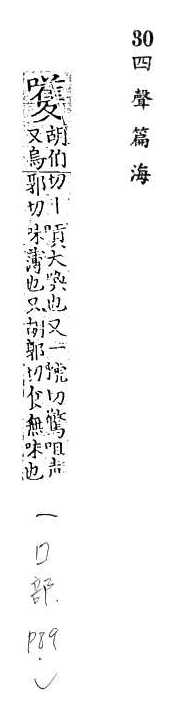 30 四聲篇海
嚄
胡伯切丨嘖大喚也又一虢切驚咀声
又烏郭切味薄也又胡郭切食無味也
一 口部. P89.